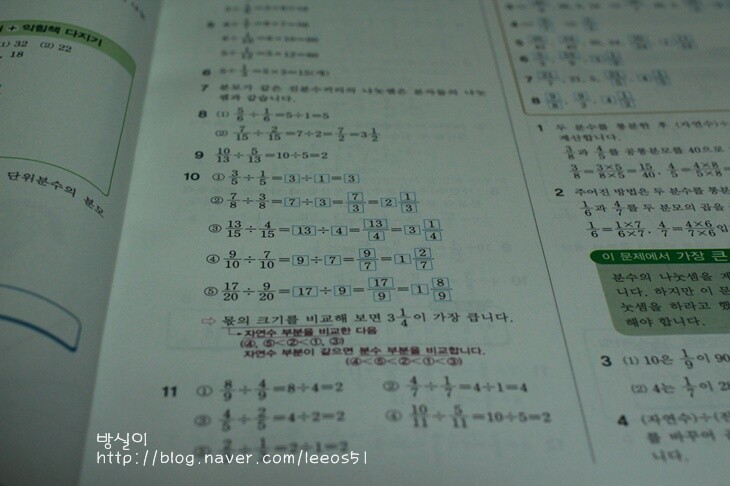 + 익힘책 다지기
(1) 32 (2) 22
18
단위분수의 분모
7 분모가 같은 진분수끼리의 나눗셈은 분자들의 나눗
셈과 같습니다.
8 (1) 5/6÷1/6=5÷1=5
(2) 7/15÷2/15=7÷2=7/2=3 1/2
9 10/13÷5/13=10÷5=2
10 ① 3/5÷1/5=3÷1=3
② 7/8÷3/8=7÷3=7/3=2 1/3
③ 13/15÷4/15=13÷4=13/4=3 1/4
④ 9/10÷7/10=9÷7=9/7=1 2/7
⑤ 17/20÷9/20=17÷9=17/9=1 8/9
⇨ 몫의 크기를 비교해 보면 3 1/4이 가장 큽니다.
자연수 부분을 비교한 다음
(④, ⑤<②<①, ③)
자연수 부분이 같으면 분수 부분을 비교합니다.
(④<⑤<②<①<③)
11 ① 8/9÷4/9=8÷4=2 ② 4/7÷1/7=4÷1=4
③ 4/5÷2/5=4÷2=2 ④ 10/11÷5/11=10÷5=2
1 두 분수를 통분한 후 (자연수)÷
계산합니다.
3/8과 4/5를 공통분모를 40으로
3/8=3×5/8×5=15/40, 4/5=4×8/5×8=
2 주어진 방법은 두 분수를 통분
1/6과 4/7를 두 분모의 곱을
1/6=1×7/6×7, 4/7=4×6/7×6입
이 문제에서 가장 큰
분수의 나눗셈을 계
니다. 하지만 이 문
눗셈을 하라고 했
해야 합니다.
3 (1) 10은 1/9이 90
(2) 4는 1/7이 28
4 (자연수)÷(진
를 바꾸어 곱
니다.
방실이
http://blog.naver.com/leeos51